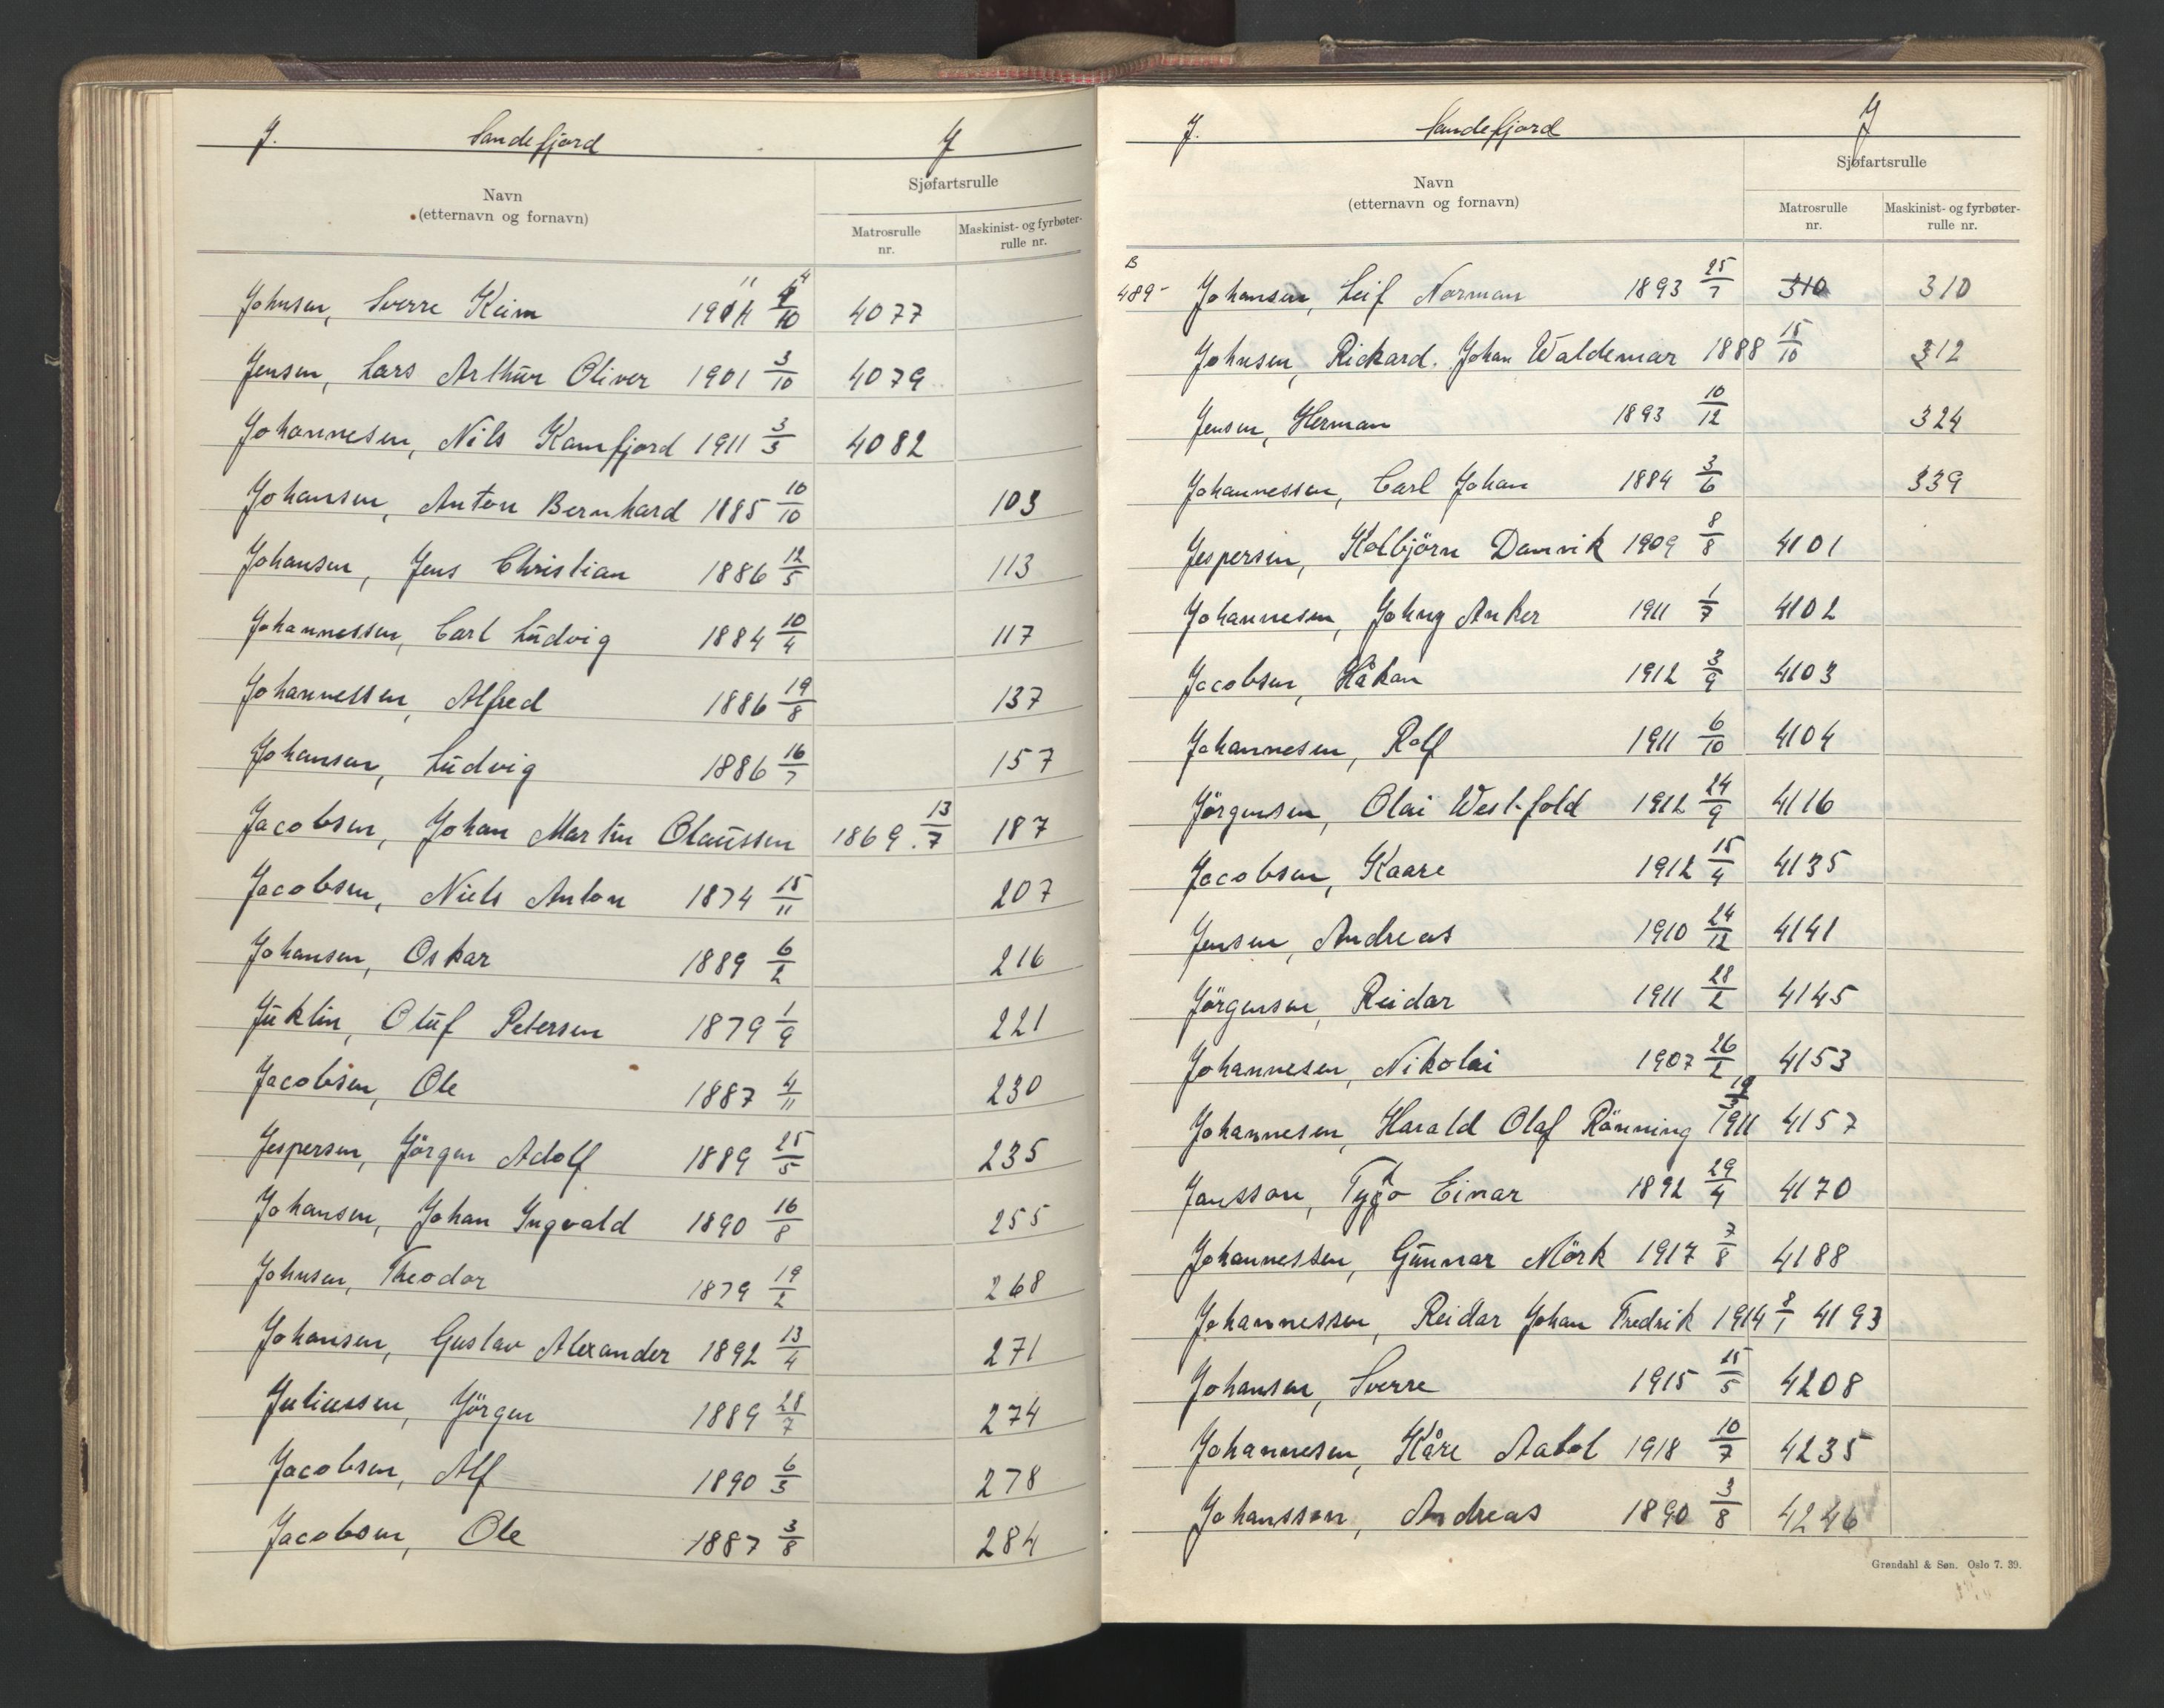 J. Sandefjord J
Navn
(etternavn og fornavn)
Sjøfartsrulle
Matrosrulle nr.
Maskinist- og fyrbøter-rulle nr.
Johnsen, Sverre Keim 4/10 4077
Jensen, Lars Arthur Oliver 1901 3/10 4079
Johannesen, Nils Kamfjord 1911 3/3 4082
Johansen, Anton Bernhard 1885 10/10 103
Johansen, Jens Christian 1886 12/5 113
Johannessen, Carl Ludvig 1884 10/4 117
Johannessen, Alfred 1886 19/8 137
Johansen, Ludvig 1886 16/7 157
Jacobsen, Johan Martin Olaussen 1869. 13/7 187
Jacobsen, Niels Anton 1874 15/11 207
Johansen, Oskar 1889 6/2 216
Juklin, Oluf Petersen 1879 1/9 221
Jacobsen, Ole 1887 4/11 230
Jespersen, Jörgen Adolf 1889 25/5 235
Johansen, Johan Ingvald 1890 16/8 255
Johnsen, Theodor 1879 19/2 268
Johansen, Gustav Alexander 1892 13/4 271
Juliussen, Jörgen 1889 28/7 274
Jacobsen, Alf 1890 6/3 278
Jacobsen, Ole 1887 3/8 284
J. Sandefjord J
Navn
(etternavn og fornavn)
Sjøfartsrulle
Matrosrulle nr.
Maskinist- og fyrbøter-rulle nr.
B
489- Johansen, Leif Norman 1893 25/7 310 310
Johnsen, Rickard. Johan Waldemar 1888 15/10 312
Jensen, Herman 1893 10/12 324
Johannessen, Carl Johan 1884 3/6 339
Jespersen, Kolbjörn Damvik 1909 8/8 4101
Johannesen, Johny Anker 1911 1/7 4102
Jacobsen, Håkan 1912 3/9 4103
Johannesen, Rolf 1911 6/10 4104
Jörgensen, Olai Westfold 1912 24/9 4116
Jacobsen, Kaare 1912 15/4 4135
Jensen, Andreas 1910 24/12 4141
Jörgensen, Reidar 1911 28/2 4145
Johannesen, Nikolai 1907 26/2 4153
Johannesen, Harald Olaf Rönning 1911 4157
Jansson, Einar 1892 29/4 4170
Johannessen, Gunnar Mörk 1917 7/8 4188
Johannessen, Reidar Johan Fredrik 1914 8/1 4193
Johansen, Sverre 1915 15/5 4208
Johannesen, Kåre Aabol 1918 10/7 4235
Johansson, Andreas 1890 3/8 4246
Grøndahl & Søn. Oslo 7. 39.